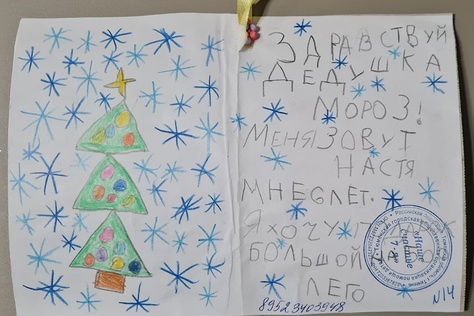 ЗДРАВСТВУЙ
ДЕДУШКА
МОРОЗ!
МЕНЯ ЗОВУТ
НАСТЯ
МНЕ 6 ЛЕТ.
Я ХОЧУ
БОЛЬШОЙ
ЛЕГО
89523403948
N14